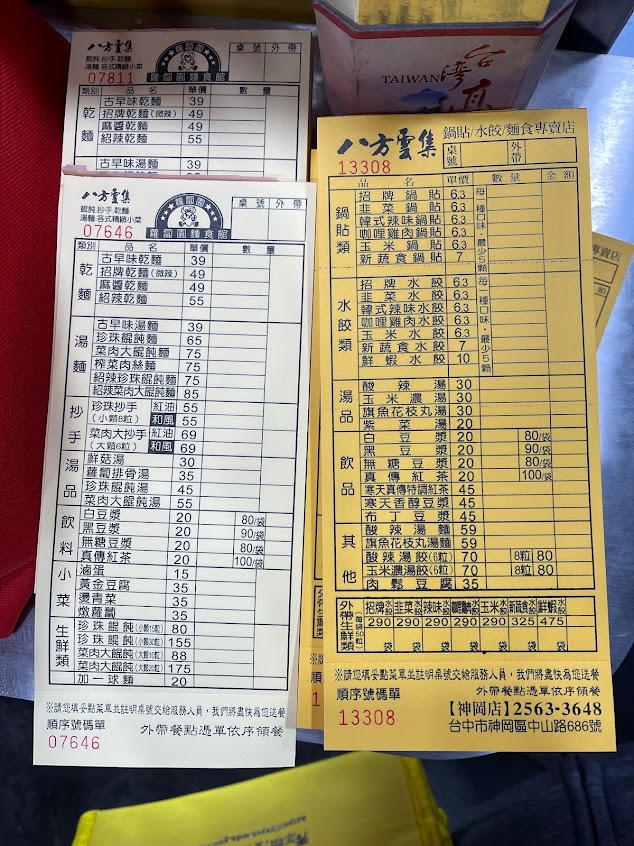 八方雲集
餛飩.抄手.乾麵
湯麵.各式精緻小菜
07811
蘿蔔園
蘿蔔園麵食館
桌號 外帶
類別 品名 單價 數量
乾麵
古早味乾麵 39
招牌乾麵(微辣) 49
麻醬乾麵 49
紹辣乾麵 55
古早味湯麵 39
八方雲集
餛飩.抄手.乾麵
湯麵.各式精緻小菜
07646
蘿蔔園
蘿蔔園麵食館
桌號 外帶
類別 品名 單價 數量
乾麵
古早味乾麵 39
招牌乾麵(微辣) 49
麻醬乾麵 49
紹辣乾麵 55
湯麵
古早味湯麵 39
珍珠餛飩麵 65
菜肉大餛飩麵 75
榨菜肉絲麵 75
紹辣珍珠餛飩麵 75
紹辣菜肉大餛飩麵 85
抄手
珍珠抄手 紅油 55
(小顆8粒) 和風 55
菜肉大抄手 紅油 69
(大顆6粒) 和風 69
湯品
鮮菇湯 30
蘿蔔排骨湯 35
珍珠餛飩湯 45
菜肉大餛飩湯 55
飲料
白豆漿 20 80/袋
黑豆漿 20 90/袋
無糖豆漿 20 80/袋
真傳紅茶 20 100/袋
小菜
滷蛋 15
黃金豆腐 35
燙青菜 35
燉蘿蔔 35
生鮮類
珍珠餛飩(小顆15粒) 80
珍珠餛飩(小顆30粒) 155
菜肉大餛飩(大顆10粒) 88
菜肉大餛飩(大顆20粒) 175
加一球麵 20
※請您填妥點菜單並註明桌號交給服務人員，我們將盡快為您送餐
順序號碼單 外帶餐點憑單依序領餐
07646
TAIWAN
台灣
八方雲集 鍋貼/水餃/麵食專賣店
13308
桌號 外帶
品名 單價 數量 金額
鍋貼類
招牌鍋貼 6.3
韭菜鍋貼 6.3
韓式辣味鍋貼 6.3
咖哩雞肉鍋貼 6.3
玉米鍋貼 6.3
新蔬食鍋貼 7
每一種口味，最少5顆
水餃類
招牌水餃 6.3
韭菜水餃 6.3
韓式辣味水餃 6.3
咖哩雞肉水餃 6.3
玉米水餃 6.3
新蔬食水餃 7
鮮蝦水餃 10
每一種口味，最少5顆
湯品
酸辣湯 30
玉米濃湯 30
旗魚花枝丸湯 30
紫菜湯 20
飲品
白豆漿 20 80/袋
黑豆漿 20 90/袋
無糖豆漿 20 80/袋
真傳紅茶 20 100/袋
寒天真傳特調紅茶 45
寒天香醇豆漿 45
布丁豆漿 45
其他
酸辣湯麵 59
旗魚花枝丸湯麵 59
酸辣湯餃(6粒) 70 8粒 80
玉米濃湯餃(6粒) 70 8粒 80
肉鬆豆腐 35
外帶生鮮
(每袋50粒)
招牌水餃 韭菜水餃 辣味水餃 咖哩雞肉水餃 玉米水餃 新蔬食水餃 鮮蝦水餃
290 290 290 290 290 325 475
袋 袋 袋 袋 袋 袋 袋
※請您填妥點菜單並註明桌號交給服務人員，我們將盡快為您送餐
順序號碼單 外帶餐點憑單依序領餐
13308
【神岡店】2563-3648
台中市神岡區中山路686號
專賣店